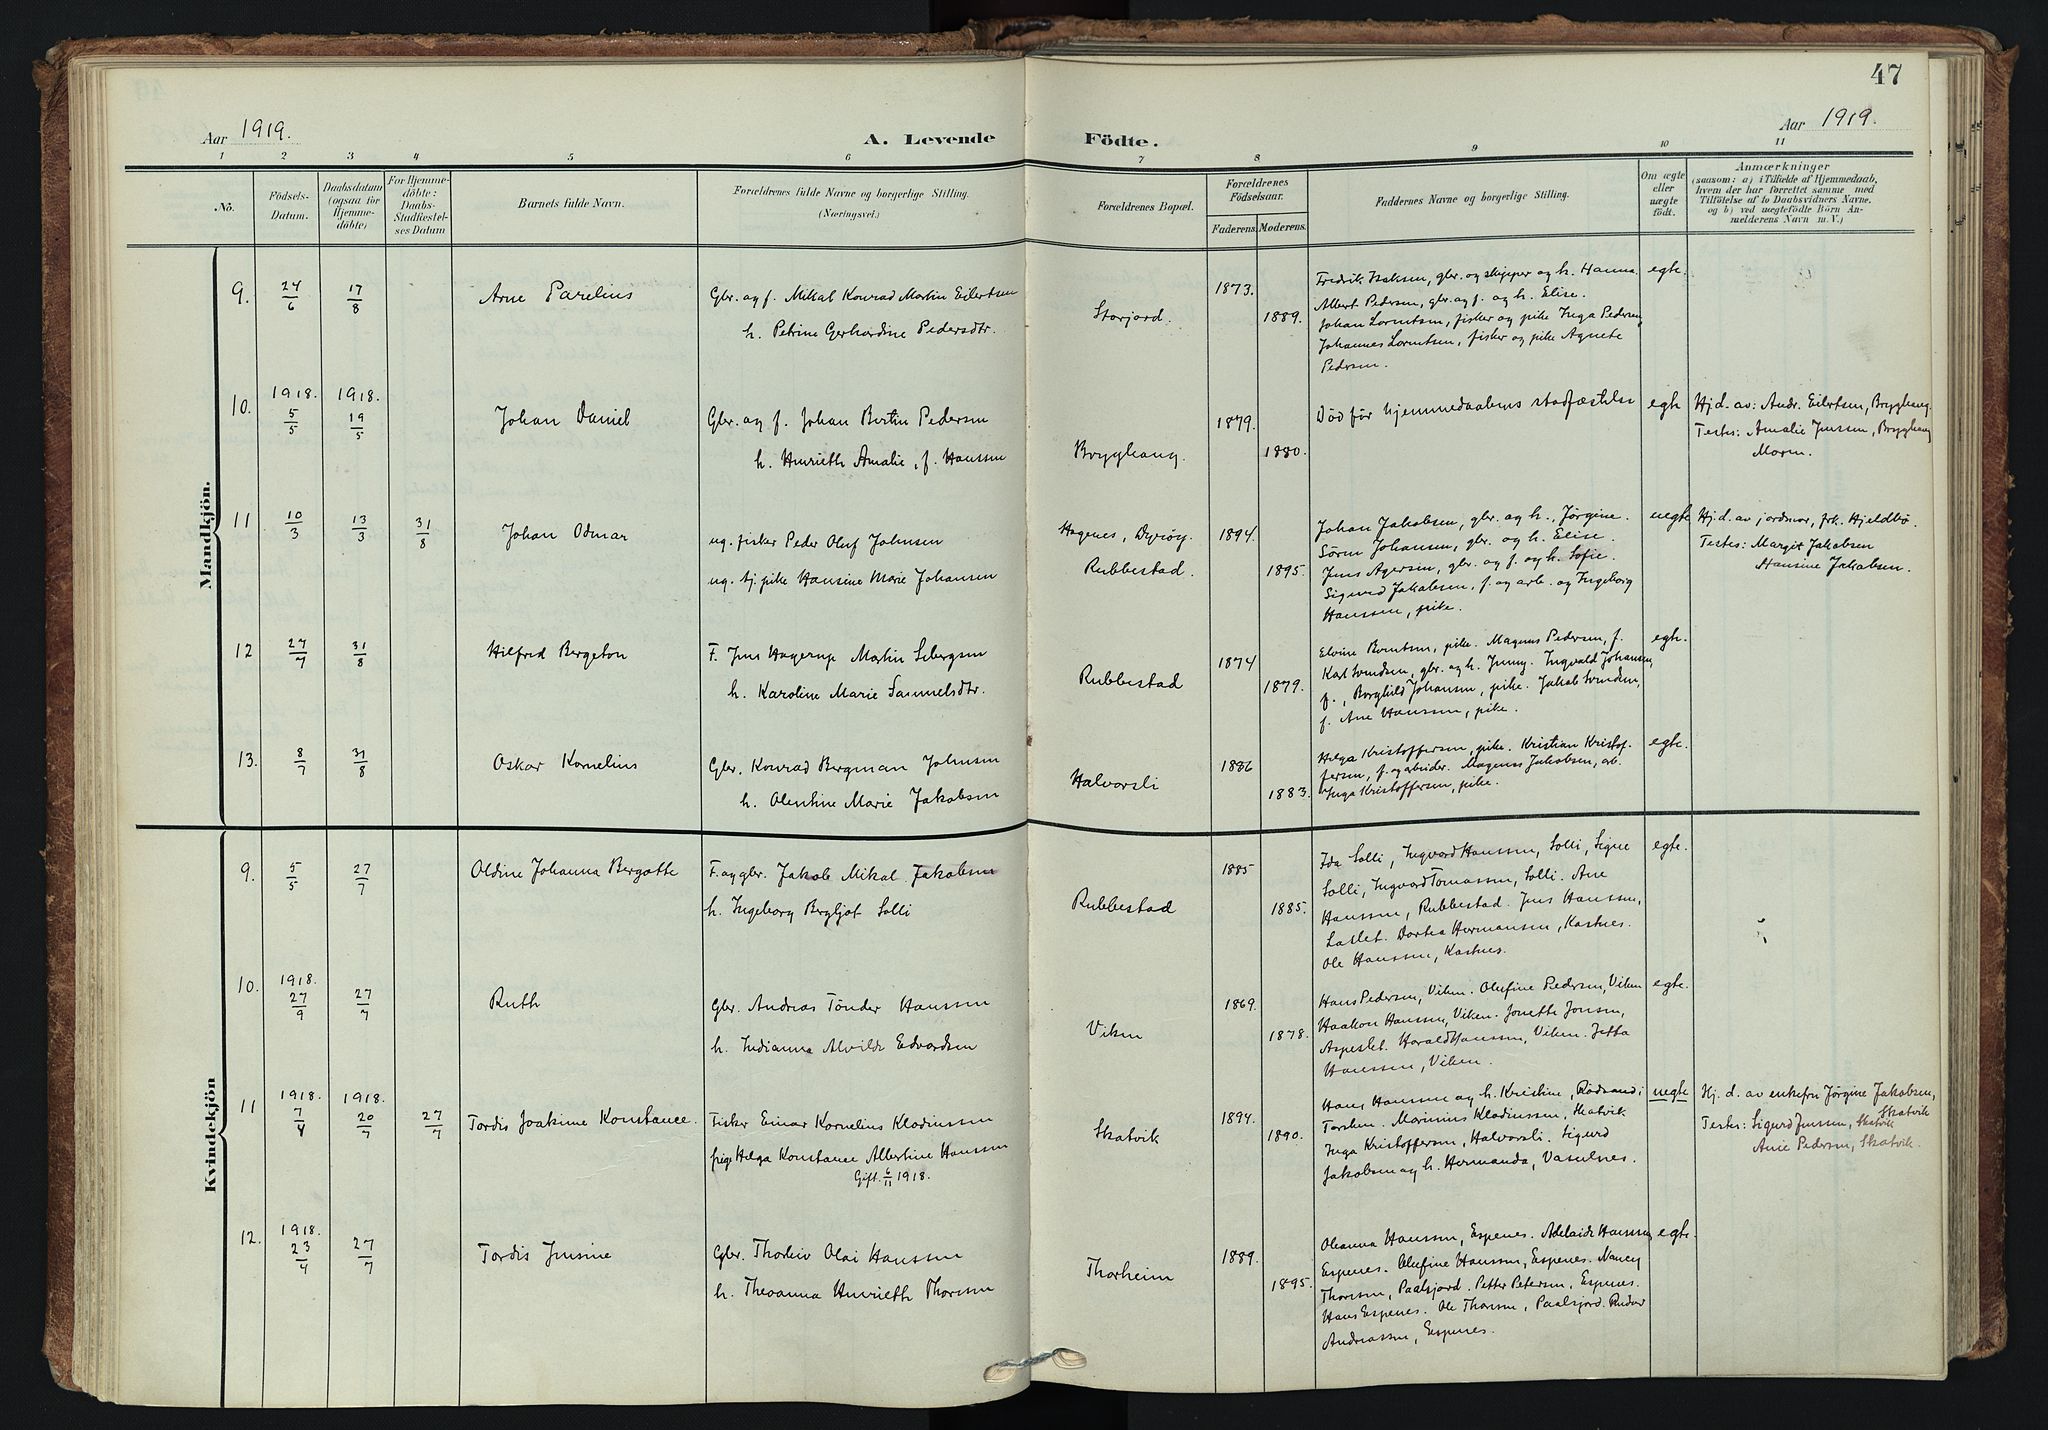 47
Aar 1919.
A. Levende Födte.
Aar 1919.
1 2 3 4 5 6 7 8 9 10 11
No.
Födsels-
Datum.
Daabsdatum
(ogsaa for
Hjemme-
döbte)
For Hjemme-
döbte:
Daabs-
Stadfæstel-
ses Datum
Barnets fulde Navn.
Forældrenes fulde Navne og borgerlige Stilling.
(Næringsvei.)
Forældrenes Bopæl.
Forældrenes
Födselsaar.
Faderens. Moderens.
Faddernes Navne og borgerlige Stilling.
Om ægte
eller
uægte
födt.
Anmærkninger
(saasom: a) i Tilfælde af Hjemmedaab,
hvem der har forrettet samme med
Tilföielse af to Daabsvidners Navne,
og b) ved uegtefödte Börn An-
melderens Navn m. V.)
Mandkjön.
9. 24/6 17/8 Arne Parelius
Gbr. og f. Mikal Konrad Martin Eilertsen
h. Petrine Gerhardine Pedersdtr.
Storjord.
1873.
1889.
Fredrik Isaksen, gbr. og skipper og h. Hanna,
Albert Pedersen, gbr. og f. og h. Elise.
Johan Lorentsen, fisker og pike Inga Pedersen,
Johannes Lorentsen, fisker og pike Agnete
Pedersen.
egte.
10. 1918. 5/5 1918. 19/5 Johan Daniel
Gbr. og f. Johan Bertin Pedersen
h. Henrieth Amalie, f. Hanssen
Brygghaug.
1879.
1880.
Död før hjemmedaabens stadfæstelse
egte
Hj.d. av: Andr. Eilertsen, Brygghaug.
Testes: Amalie Jenssen, Brygghaug
Moren.
11 10/3 13/3 31/8 Johan Odmar
ug. fisker Peder Oluf Johnsen
ug. tj. pike Hansine Marie Johansen
Hagenes, Dyrøy.
Rubbestad.
1894.
1895.
Johan Jakobsen, gbr. og h., Jørgine.
Søren Johansen, gbr. og h. Elise.
Jens Agersen, gbr. og f. og h. Sofie.
Sigurd Jakobsen, f. og arb. og Ingeborg
Hanssen, pike.
uegte
Hj.d. av jordmor, frk. Hjeldbö.
Testes: Margit Jakobsen
Hansine Jakobsen.
12 27/7 31/8 Hilfred Bergeton
F. Jens Hagerup Martin
h. Karoline Marie Samuelsdtr.
Rubbestad
1874
1879.
Elvine Berntsen, pike. Magnus Pedersen, f.
Karl Svendsen, gbr. og h. Jenny. Ingvald Johansen,
f., Borghild Johansen, pike. Jakob Svendsen,
f. Ane Hanssen, pike.
egte.
13. 8/7 31/8 Oskar Kornelius
Gbr. Konrad Bergman Johnsen
h. Olentine Marie Jakobsen
Halvorsli
1886
1883.
Helga Kristoffersen, pike. Kristian Kristof-
fersen, f. og arbeider. Magnus Jakobsen, arb.
Inga Kristoffersen, pike.
egte.
Kvindekjön
9. 5/5 27/7 Oldine Johanna Bergotte
F. og gbr. Jakob Mikal Jakobsen
h. Ingeborg Bergljot Solli
Rubbestad
1885
1885.
Ida Solli, Ingvard Hanssen, Solli, Signe
Solli, Ingvard Tomassen, Solli. Ane
Hanssen, Rubbestad. Jens Hanssen,
Dortea Hermansen, Kastnes.
Ole Hanssen, Kastnes.
egte.
10. 1918. 27/9 27/7 Ruth
Gbr. Andreas Tönder Hanssen
h. Indianna Alvilde Edvardsen
Viken
1869.
1878.
Hans Pedersen, Viken. Olufine Pedersen, Viken
Haakon Hanssen, Viken. Jonette Jonsen,
Harald Hanssen, Viken. Jetta
Hanssen, Viken.
egte.
11 1918. 7/4 1918. 20/7 27/7 Tordis Joakime Konstance.
Fisker Einar Kornelius Kladiussen
pige Helga Konstance Albertine Hanssen
Gift. 6/11 1918.
Skatvik
1894.
1890.
Hans Hanssen og h. Kristine, Rödsand i
Torsken. Marinius Kladiussen, Skatvik
Inga Kristoffersen, Halvorsli. Sigurd
Jakobsen og h. Hermanda, Vaselnes.
uegte
Hj. d. av enkefru Jørgine Jakobsen,
Skatvik
Testes: Sigurd Jenssen, Skatvik
Anie Pedersen, Skatvik.
12. 1918. 23/4 27/7 Tordis Jensine
Gbr. Thorleiv Olai Hanssen
h. Theoanna Henrieth Thoresen
Thorheim
1889.
1895.
Oleanna Hanssen, Espenes. Adelaide Hanssen
Espenes. Olufine Hanssen, Espenes. Nancy
Thoresen, Paalsjord. Petter Petersen, Espenes.
Hans Espenes. Ole Thoresen, Paalsjord. Reidar
Andreassen, Espenes.
egte.